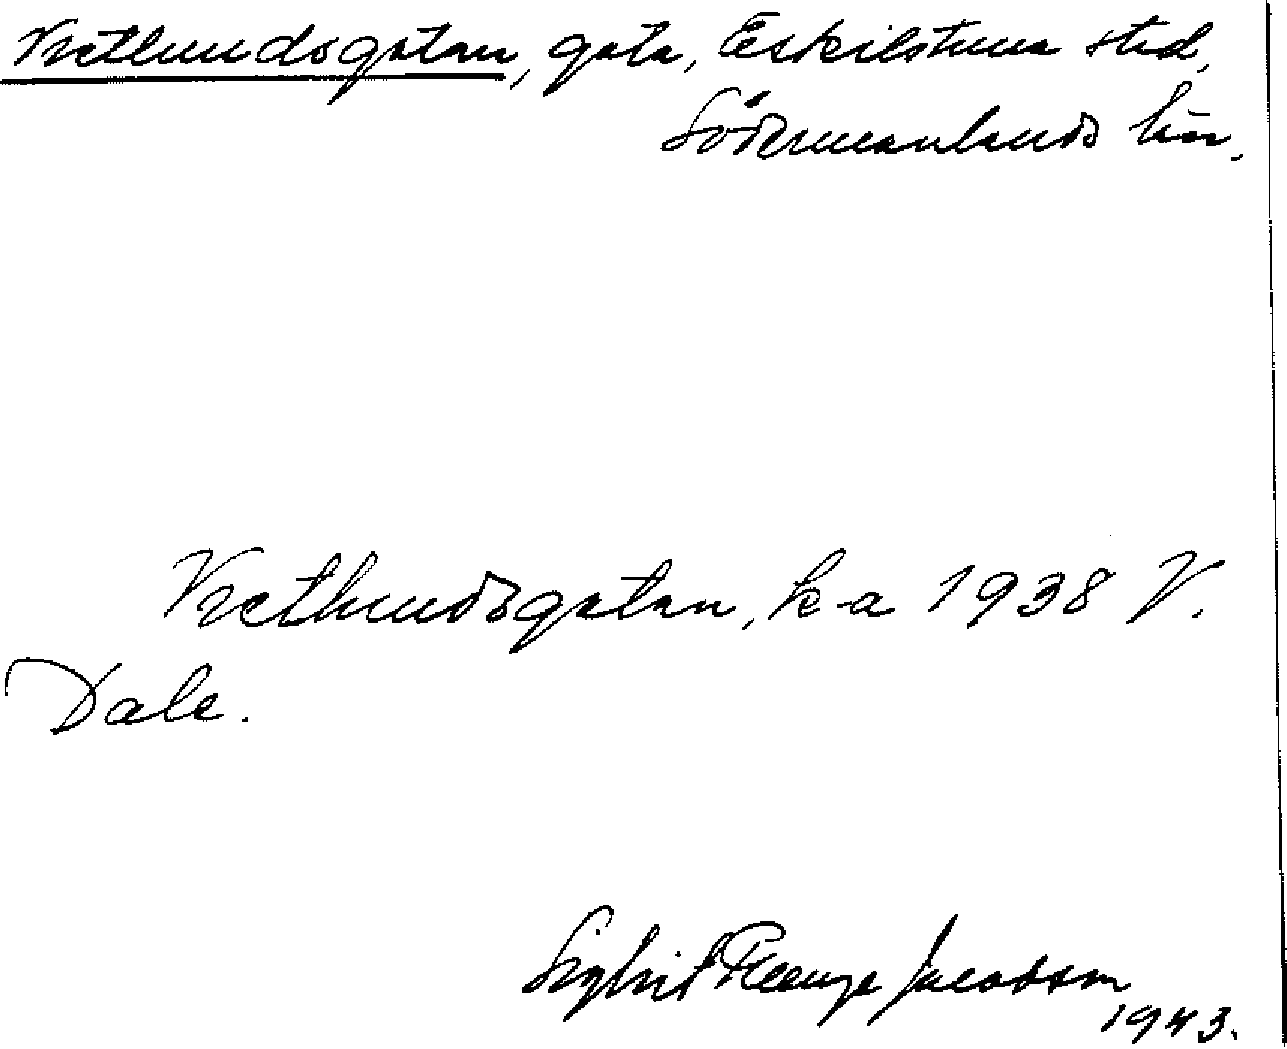 Vretlundsgatan, gata, Eskilstuna stad,
Södermanlands län.
Vretlundsgatan, k-a 1938 V.
Dale.
Sigbrit Plænge Jacobson
1943.